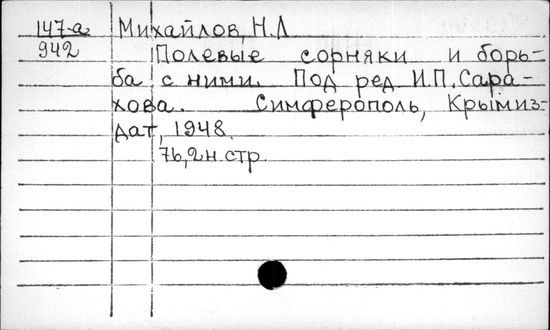 147-а Михайлов, Н.Л
942 Полевые сорняки и борь-
ба с ними. Под ред И.П. Сара-
хова. Симферополь, Крымиз-
дат, 1948.
76,2н.стр.